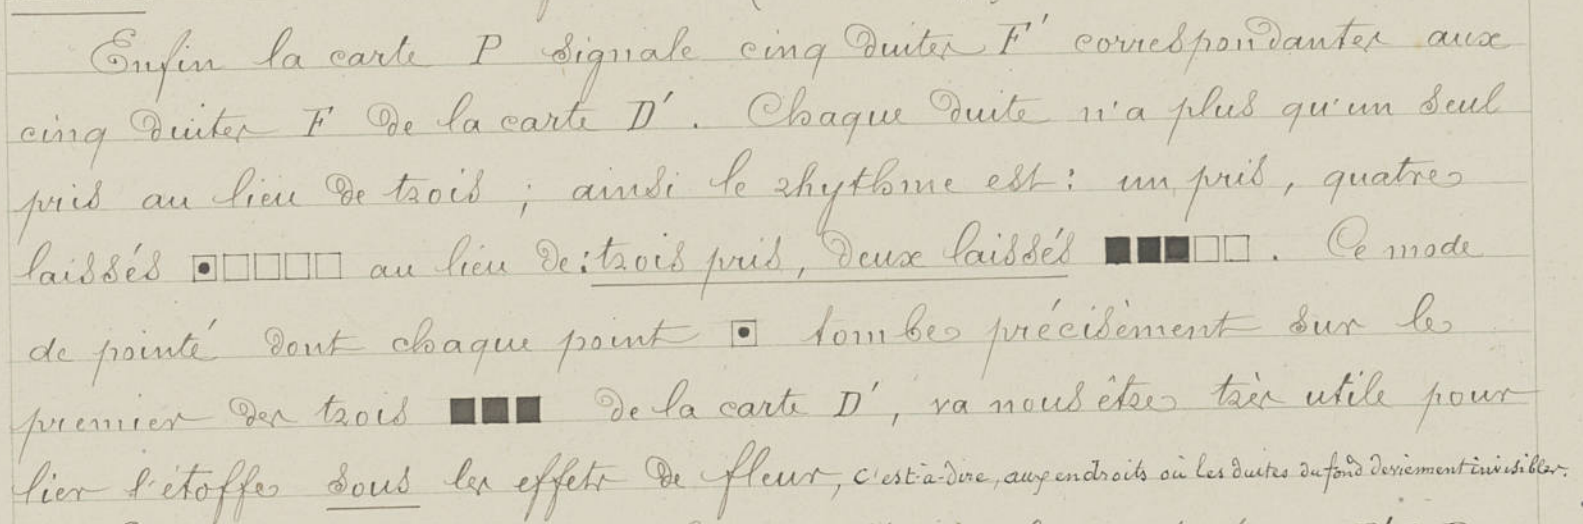 Enfin la carte P signale cinq duites F' correspondantes aux
cinq duites F de la carte D'. Chaque duite n'a plus qu'un seul
pris au lieu de trois ; ainsi le rhythme est : un pris, quatre
laissés ▣□□□□ au lieu de : trois pris, deux laissés ■■■□□. Ce mode
de pointé dont chaque point ▣ tombe précisèment sur le
premier des trois ■■■ de la carte D', va nous être très utile pour
lier l'étoffe sous les effets de fleur, c'est-à-dire, aux endroits où les duites du fond deviennent invisibles.